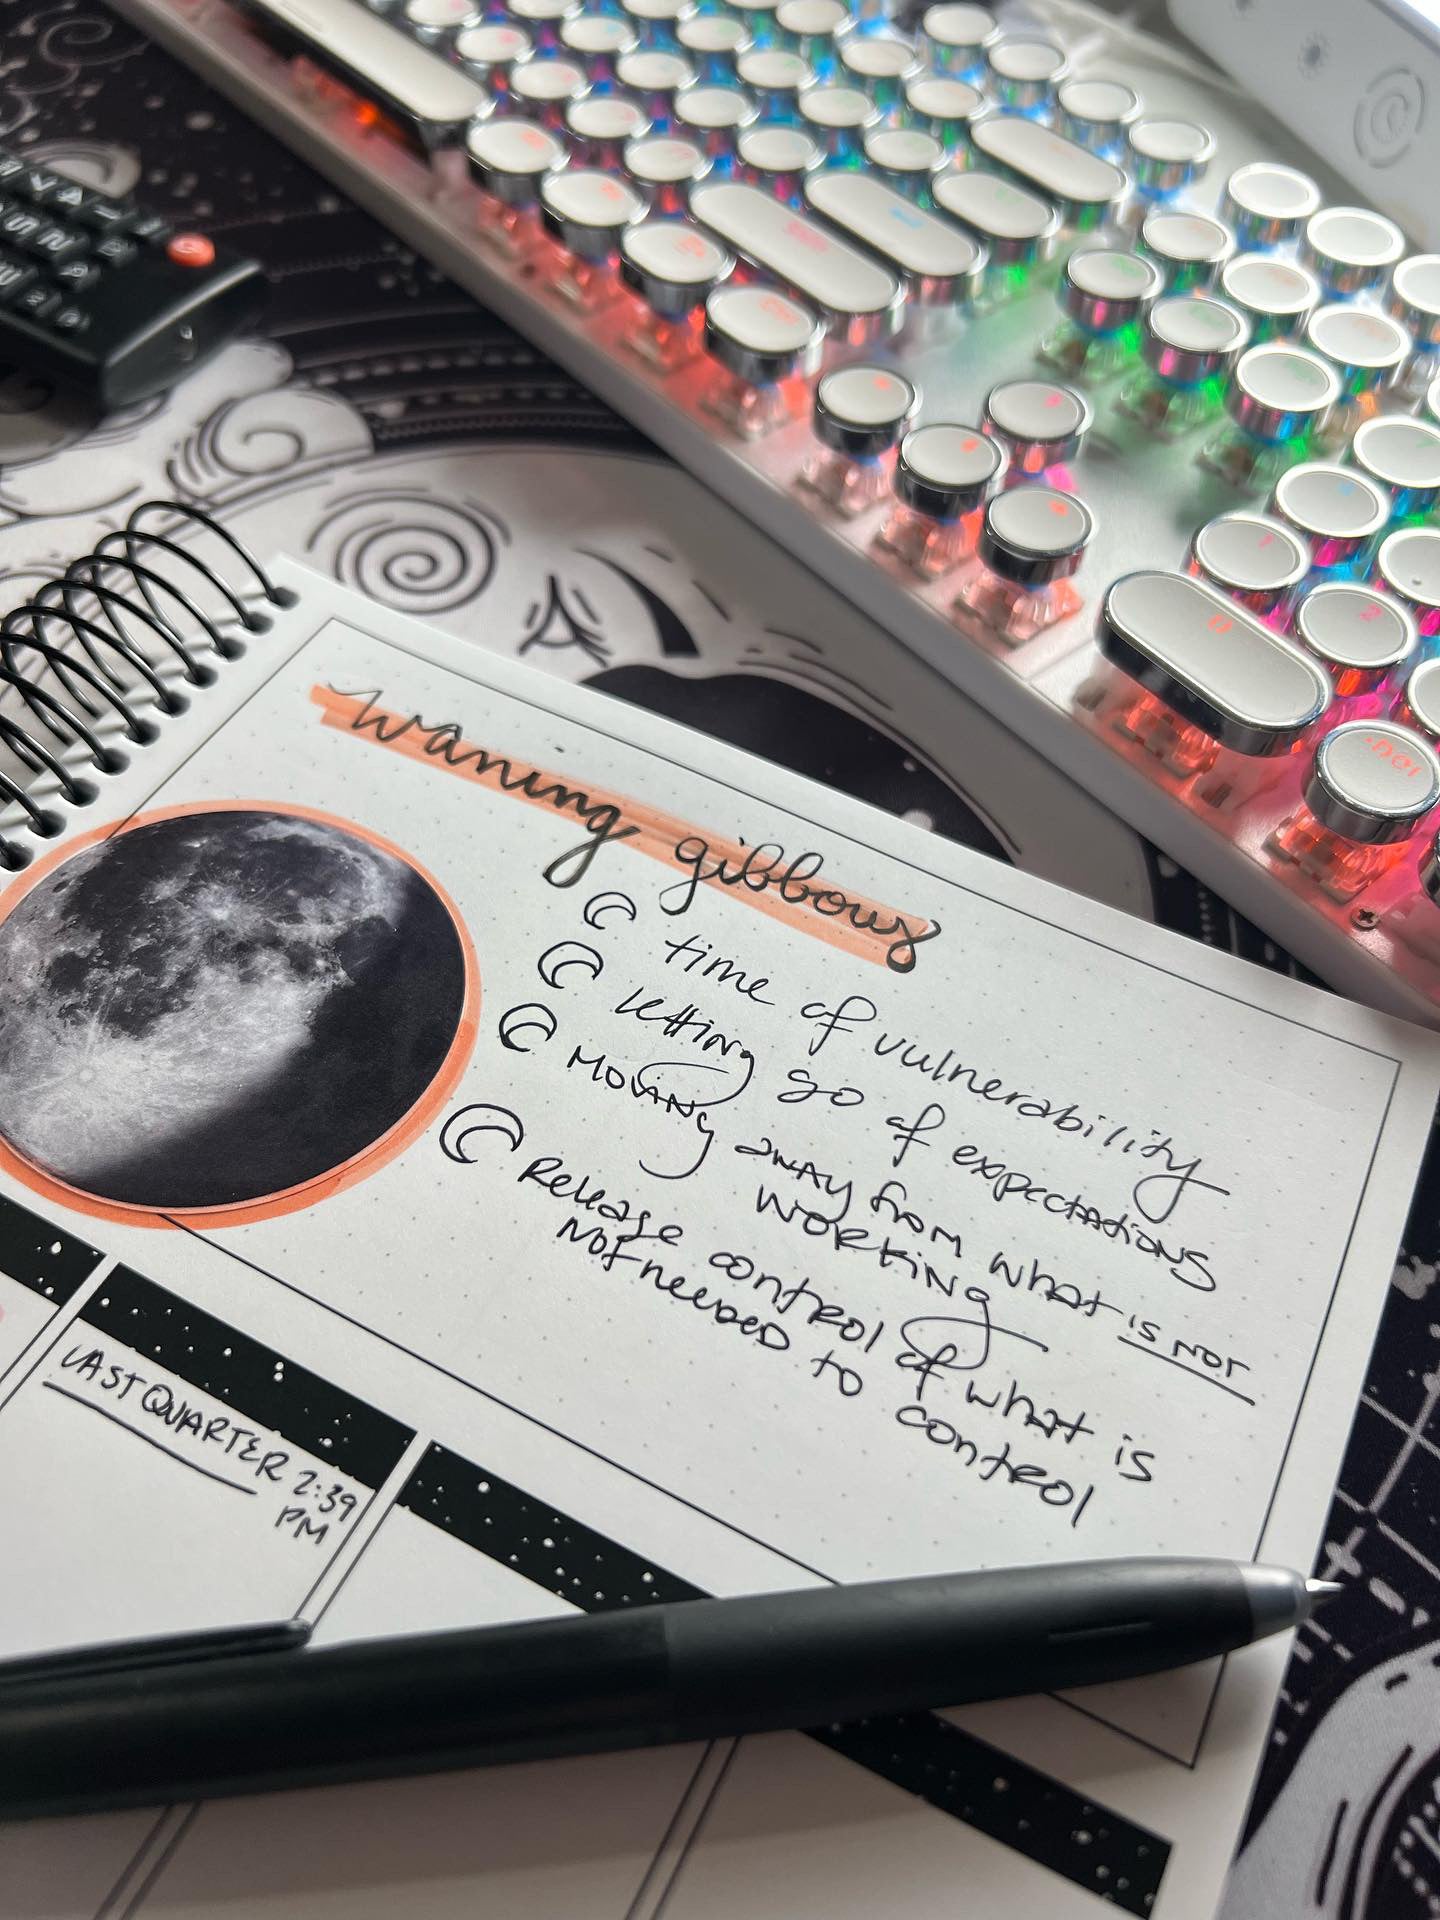 waning gibbous
time of vulnerability
letting go of expectations
MOVING away from what is NOT
WORKING
Release control of what is
NOT needed to control
LAST QUARTER 2:39
PM
0
1
2